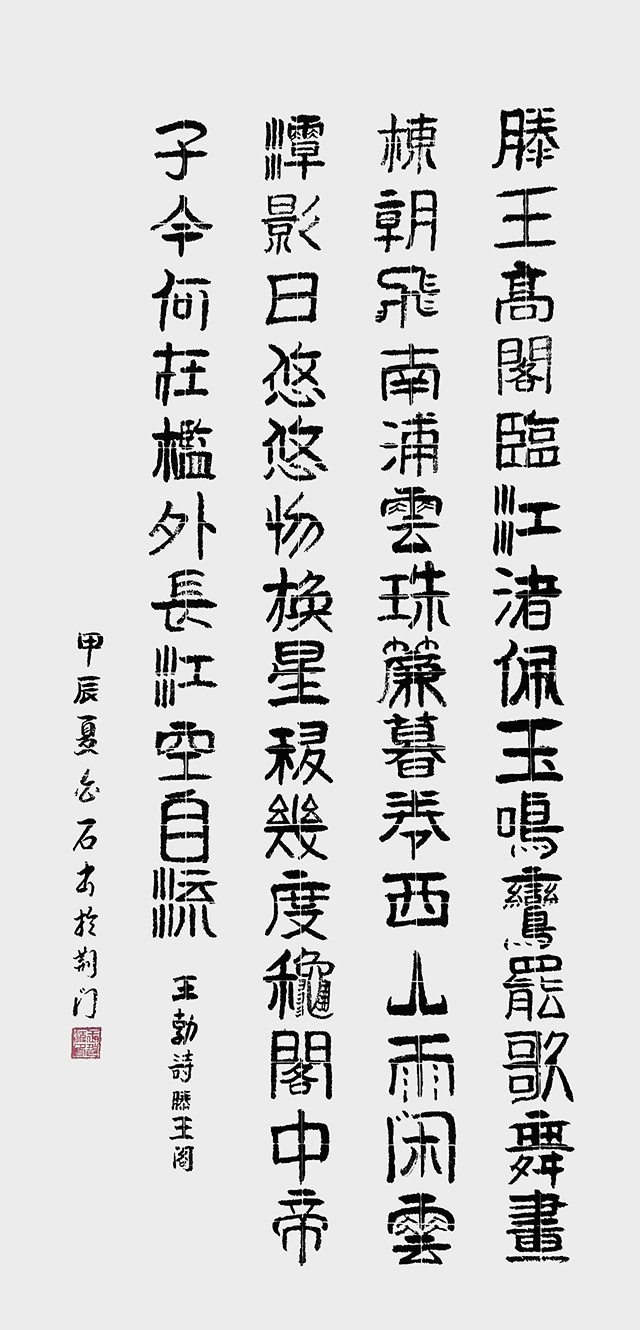 滕王高閣臨江渚佩玉鳴鸞罷歌舞畫
棟朝飛南浦雲珠簾暮卷西山雨闲雲
潭影日悠悠物換星移幾度穐閣中帝
子今何在檻外長江空自流
王勃詩滕王阁
甲辰夏 石书於荆门